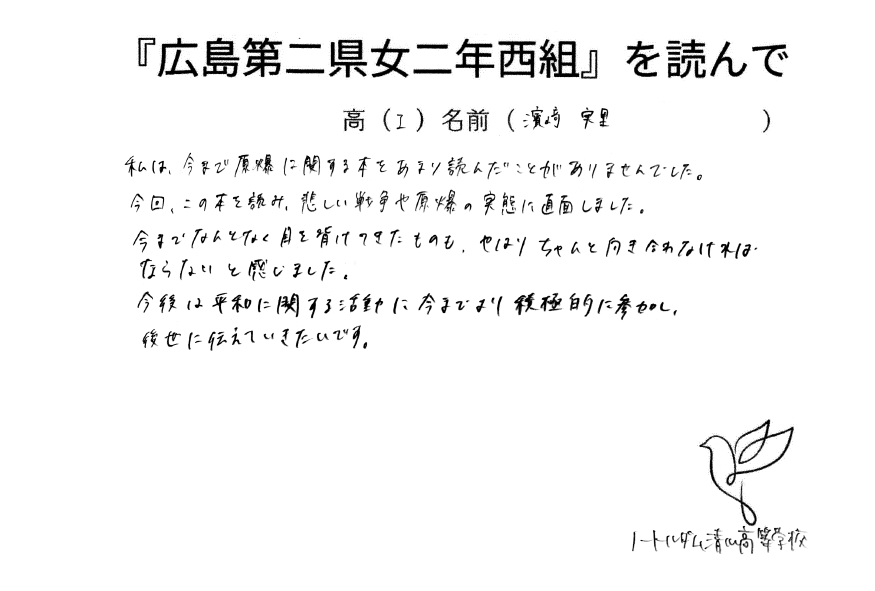 『広島第二県女二年西組』を読んで
高（1）名前（濱崎 実里）
私は、今まで原爆に関する本をあまり読んだことがありませんでした。
今回、この本を読み、悲しい戦争や原爆の実態に直面しました。
今までなんとなく目を背けてきたものも、やはりちゃんと向き合わなければ
ならないと感じました。
今後は平和に関する活動に今までより積極的に参加し、
後世に伝えていきたいです。
ノートルダム清心高等学校